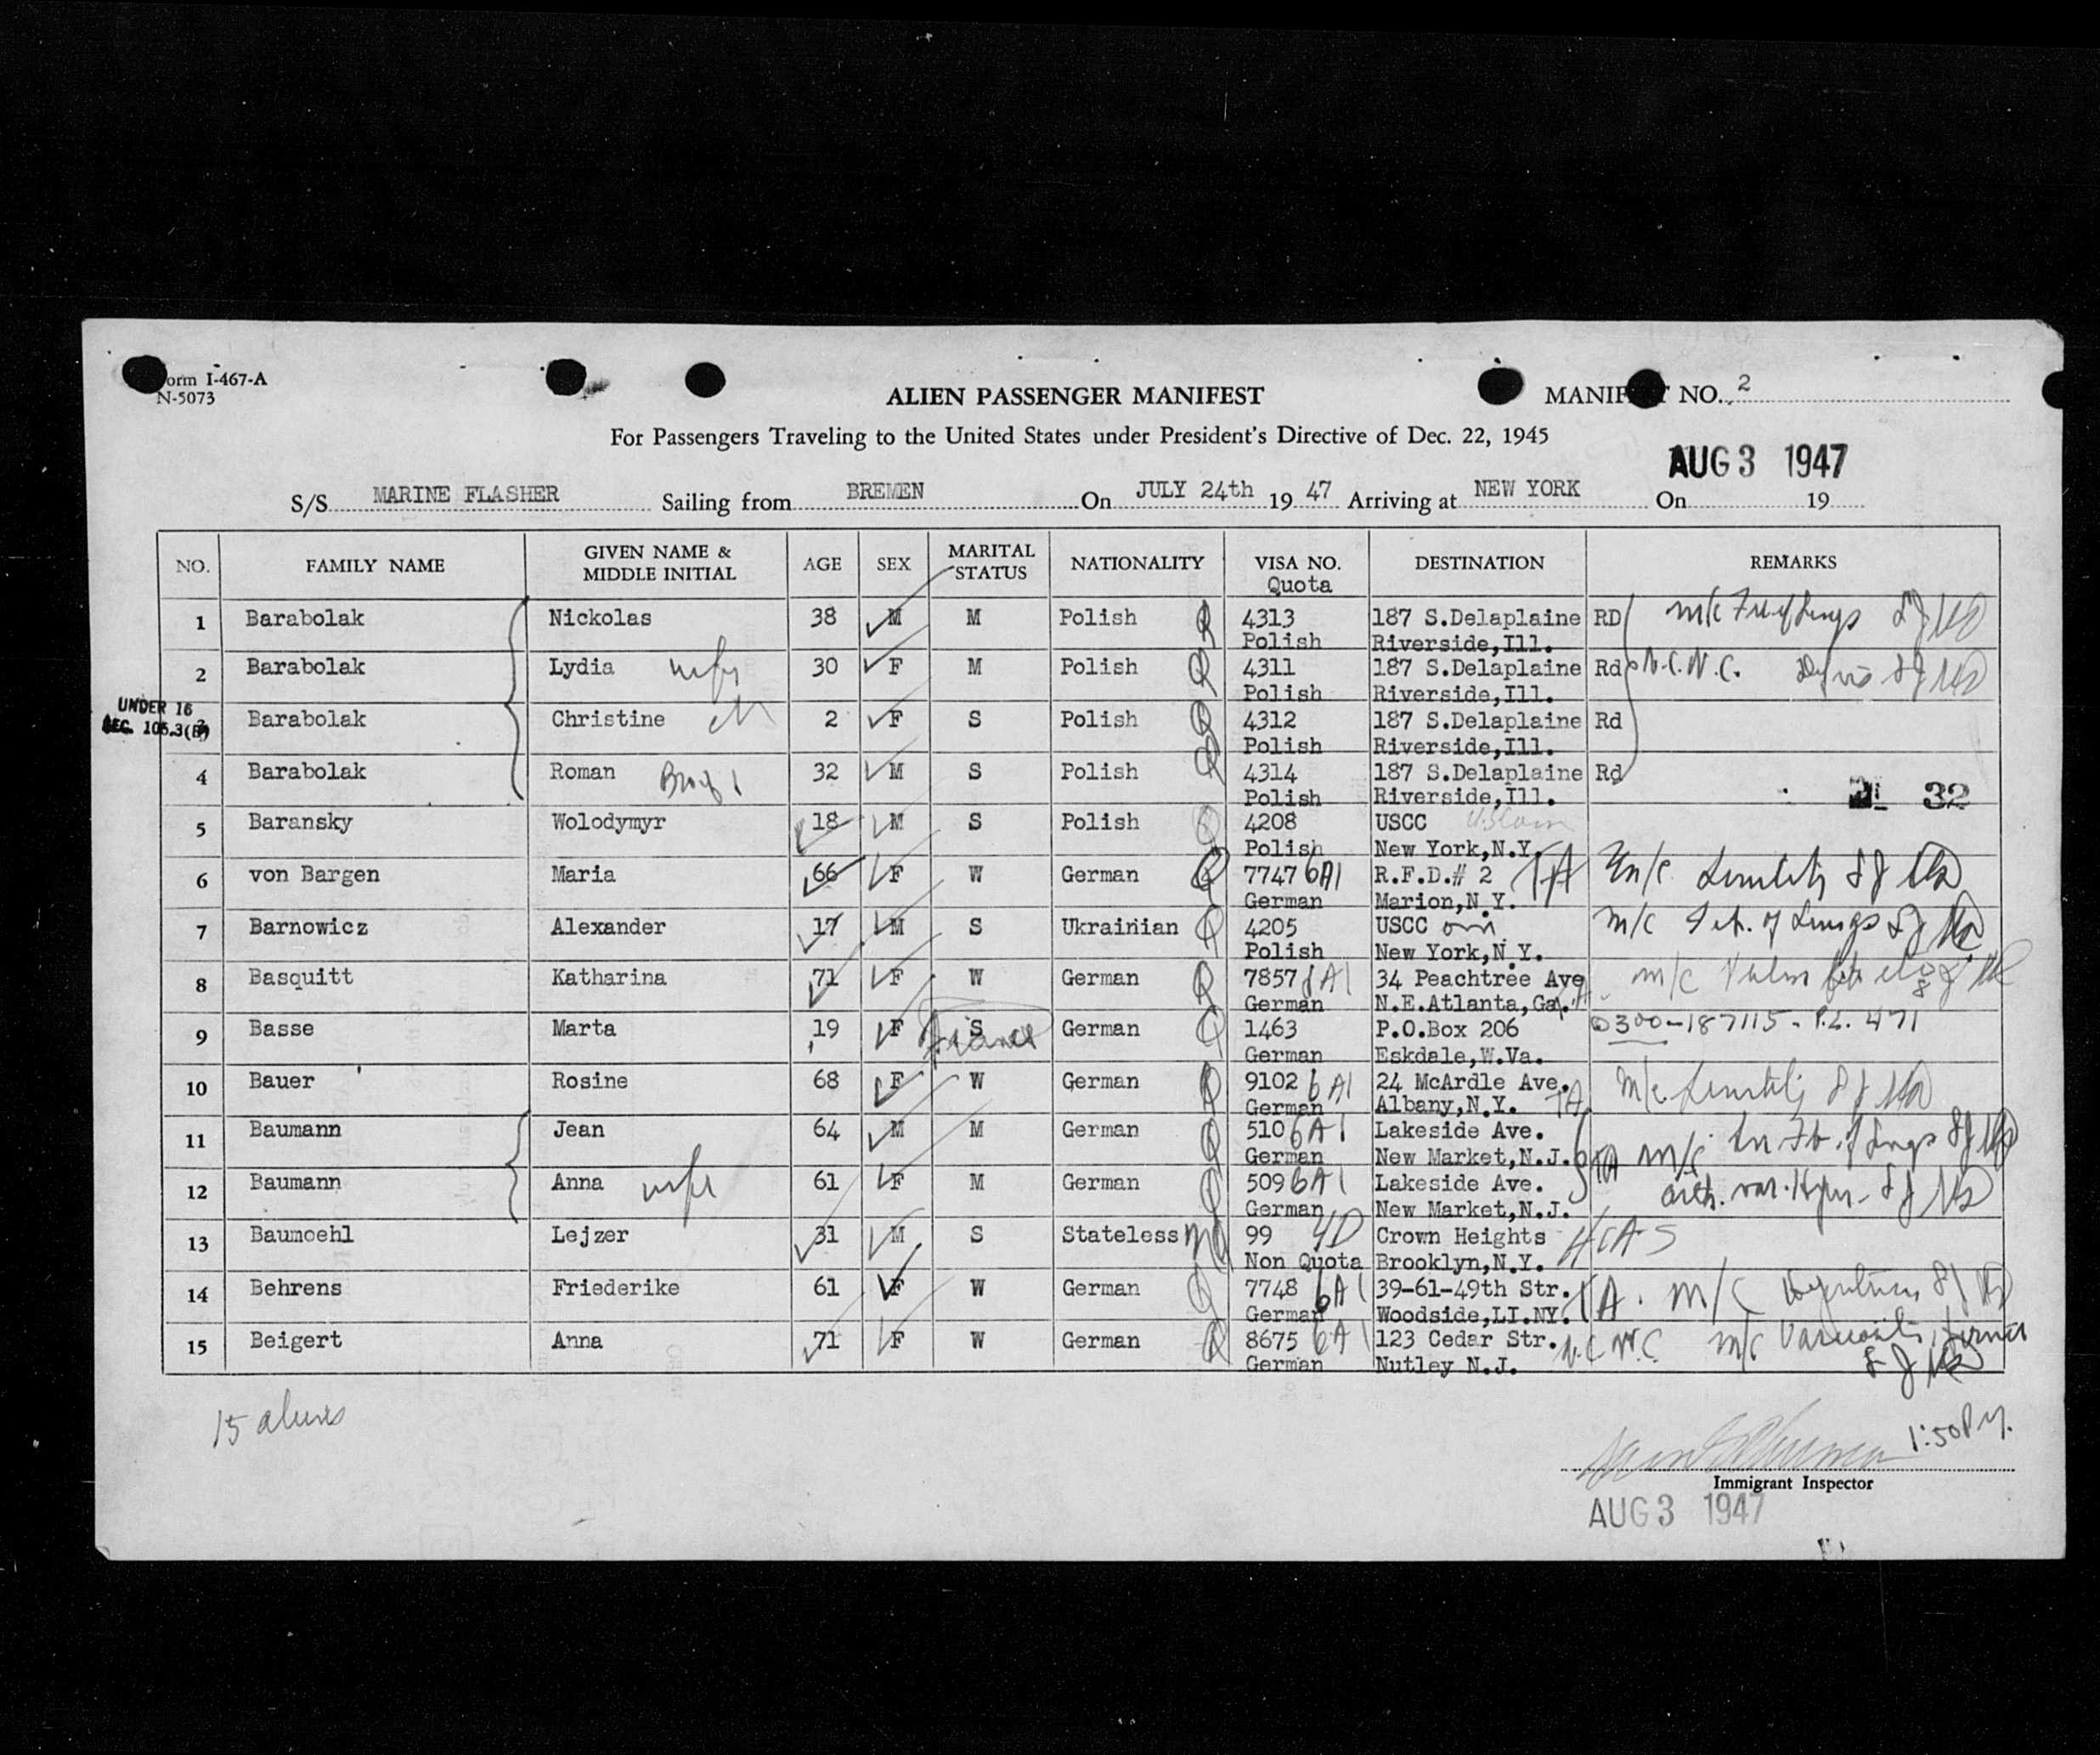 Form I-467-A
N-5073
ALIEN PASSENGER MANIFEST
MANIFEST NO. 2
For Passengers Traveling to the United States under President's Directive of Dec. 22, 1945
AUG 3 1947
S/S MARINE FLASHER Sailing from BREMEN On JULY 24th 19 47 Arriving at NEW YORK On 19
NO. FAMILY NAME GIVEN NAME & MIDDLE INITIAL AGE SEX MARITAL STATUS NATIONALITY VISA NO. Quota DESTINATION REMARKS
1 Barabolak Nickolas 38 M M Polish Q 4313 187 S.Delaplaine RD m/c
Polish Riverside,Ill.
2 Barabolak Lydia wife 30 F M Polish Q 4311 187 S.Delaplaine Rd N.C.W.C.
Polish Riverside,Ill.
UNDER 16
SEC. 105.3(B)
3 Barabolak Christine ch 2 F S Polish Q 4312 187 S.Delaplaine Rd
Polish Riverside,Ill.
4 Barabolak Roman 32 M S Polish Q 4314 187 S.Delaplaine Rd
Polish Riverside,Ill.
32
5 Baransky Wolodymyr 18 M S Polish Q 4208 USCC
Polish New York,N.Y.
6 von Bargen Maria 66 F W German Q 7747 6A1 R.F.D.# 2 TA m/c Senility
German Marion,N.Y.
7 Barnowicz Alexander 17 M S Ukrainian Q 4205 USCC m/c
Polish New York,N.Y.
8 Basquitt Katharina 71 F W German Q 7857 6A1 34 Peachtree Ave m/c
German N.E.Atlanta,Ga.
9 Basse Marta 19 F S Fiancee German Q 1463 P.O.Box 206 0300-187115-P.L. 471
German Eskdale,W.Va.
10 Bauer Rosine 68 F W German Q 9102 6A1 24 McArdle Ave. m/c Senility
German Albany,N.Y. TA
11 Baumann Jean 64 M M German Q 510 6A1 Lakeside Ave. m/c
German New Market,N.J. TA
12 Baumann Anna wife 61 F M German Q 509 6A1 Lakeside Ave.
German New Market,N.J.
13 Baumoehl Lejzer 31 M S Stateless NQ 99 4D Crown Heights HIAS
Non Quota Brooklyn,N.Y.
14 Behrens Friederike 61 F W German Q 7748 6A1 39-61-49th Str. TA. m/c
German Woodside,LI.NY.
15 Beigert Anna 71 F W German Q 8675 6A1 123 Cedar Str. N.C.W.C m/c
German Nutley N.J.
15 aliens
1:50 P.M.
Immigrant Inspector
AUG 3 1947